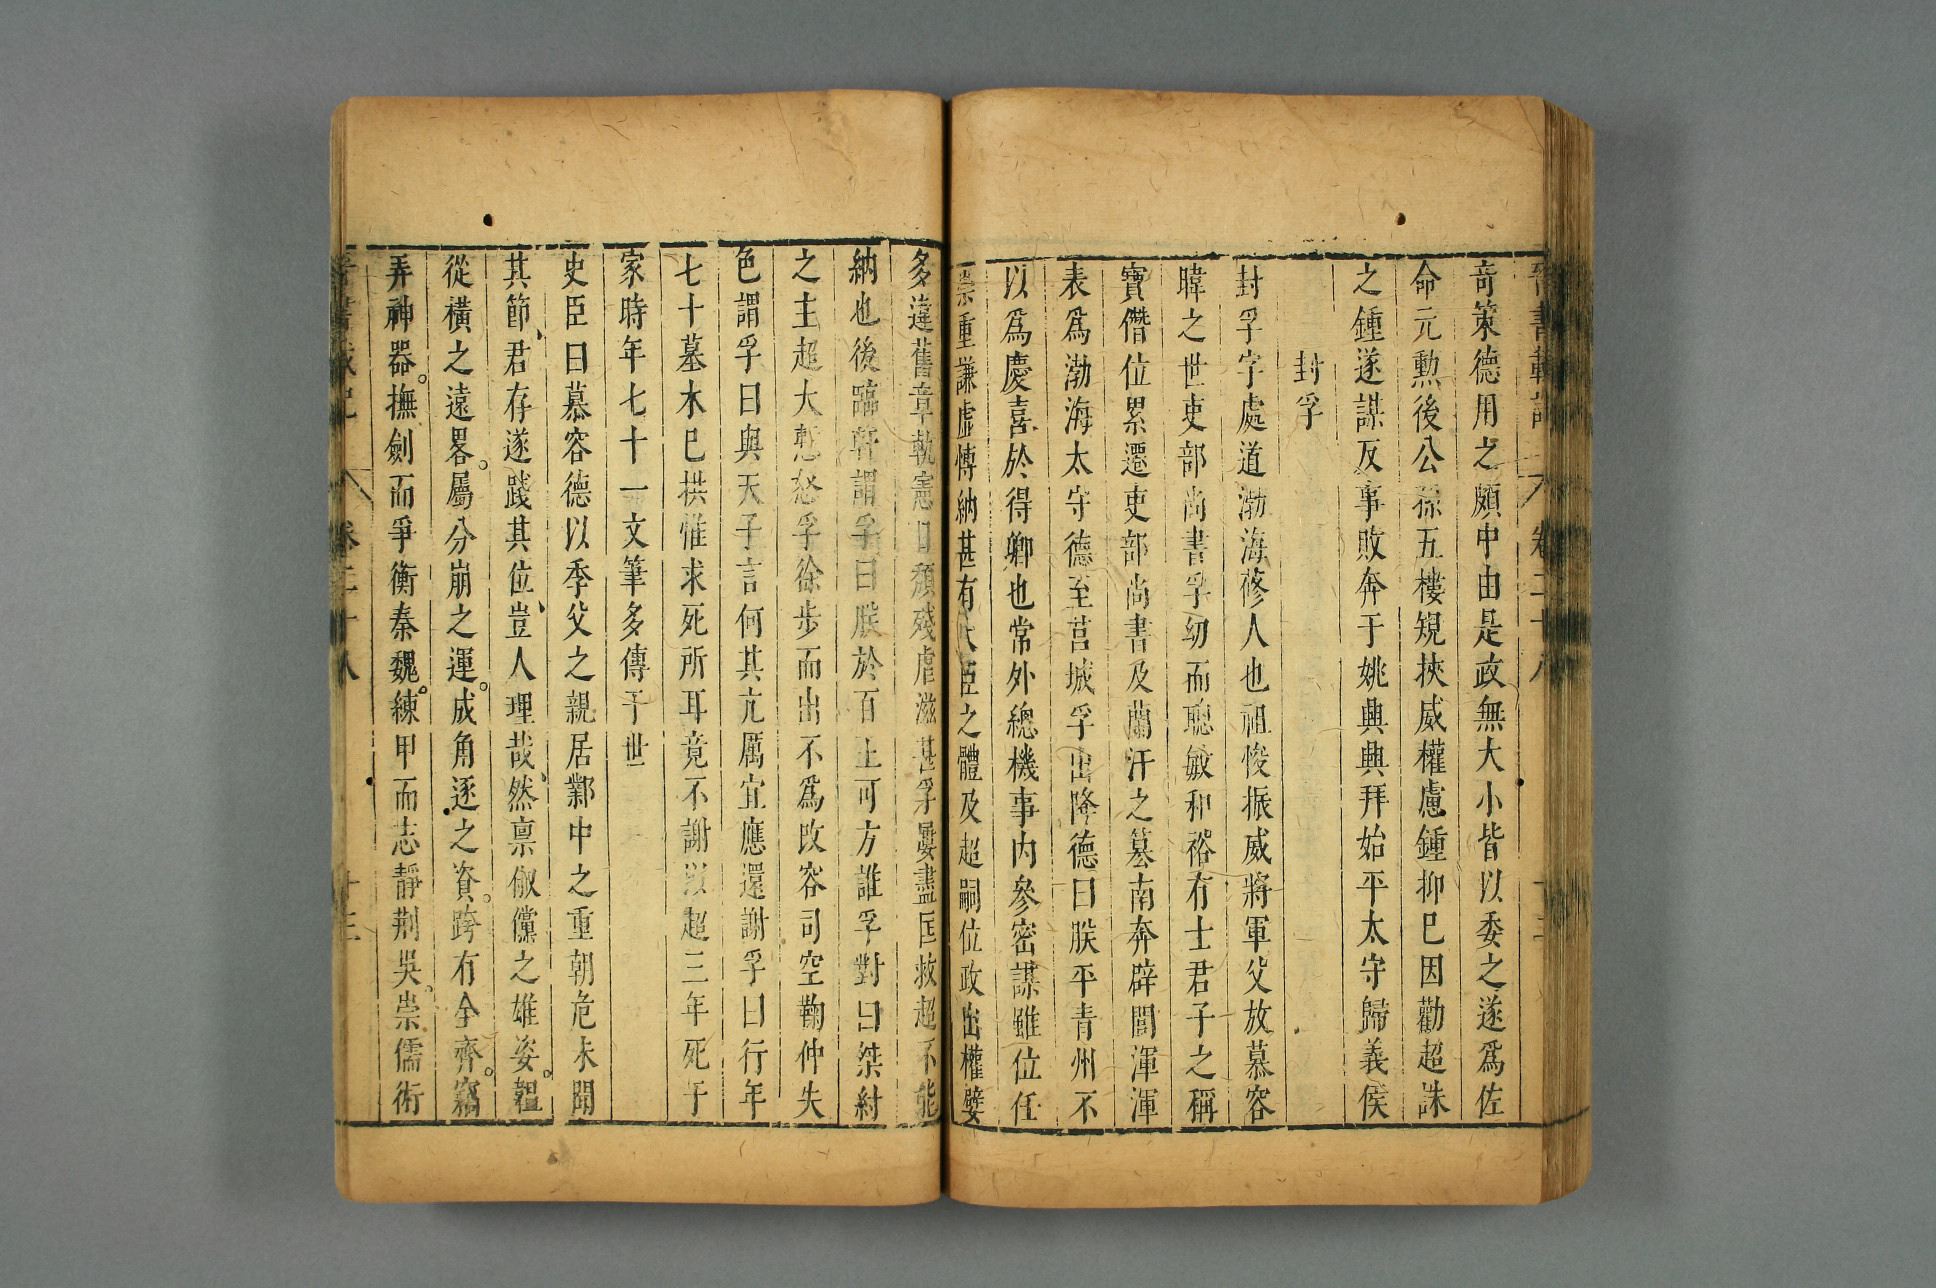 晉書載記 卷二十八 十三
奇策德用之頗中由是政無大小皆以委之遂爲佐
命元勲後公孫五樓規挾威權慮鍾抑巳因勸超誅
之鍾遂謀反事敗奔于姚興興拜始平太守歸義侯
封孚
封孚字處道渤海蓚人也祖悛振威將軍父放慕容
暐之世吏部尚書孚幼而聰敏和裕有士君子之稱
寶僭位累遷吏部尚書及蘭汗之簒南奔辟閭渾渾
表爲渤海太守德至莒城孚出降德曰朕平青州不
以爲慶喜於得卿也常外總機事內參密謀雖位任
崇重謙虛慱納甚有大臣之體及超嗣位政出權嬖
多違舊章軌憲日頹殘虐滋甚孚屢盡匡救超不能
納也後臨軒謂孚曰朕於百王可方誰孚對曰桀紂
之主超大慙怒孚徐步而出不爲改容司空鞠仲失
色謂孚曰與天子言何其亢厲宜應還謝孚曰行年
七十墓木巳拱惟求死所耳竟不謝以超三年死于
家時年七十一文筆多傳于世
史臣曰慕容德以季父之親居鄴中之重朝危未聞
其節、君存遂踐其位、豈人理哉、然禀俶儻之雄姿。韞
從橫之遠畧。屬分崩之運。成角逐之資。跨有全齊。竊
弄神器。撫劍而爭衡秦魏。練甲而志靜荆吳。崇儒術
晉書載記 卷二十八 十三